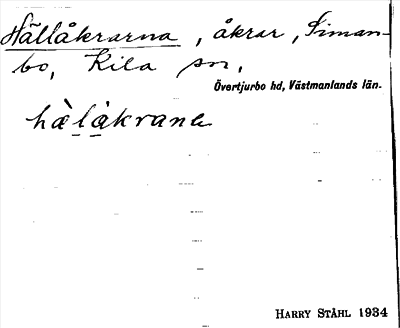 Hällåkrarna, åkrar, Siman-
bo, Kila sn,
Övertjurbo hd, Västmanlands län.
hä̀lå̀krana
HARRY STÅHL 1934